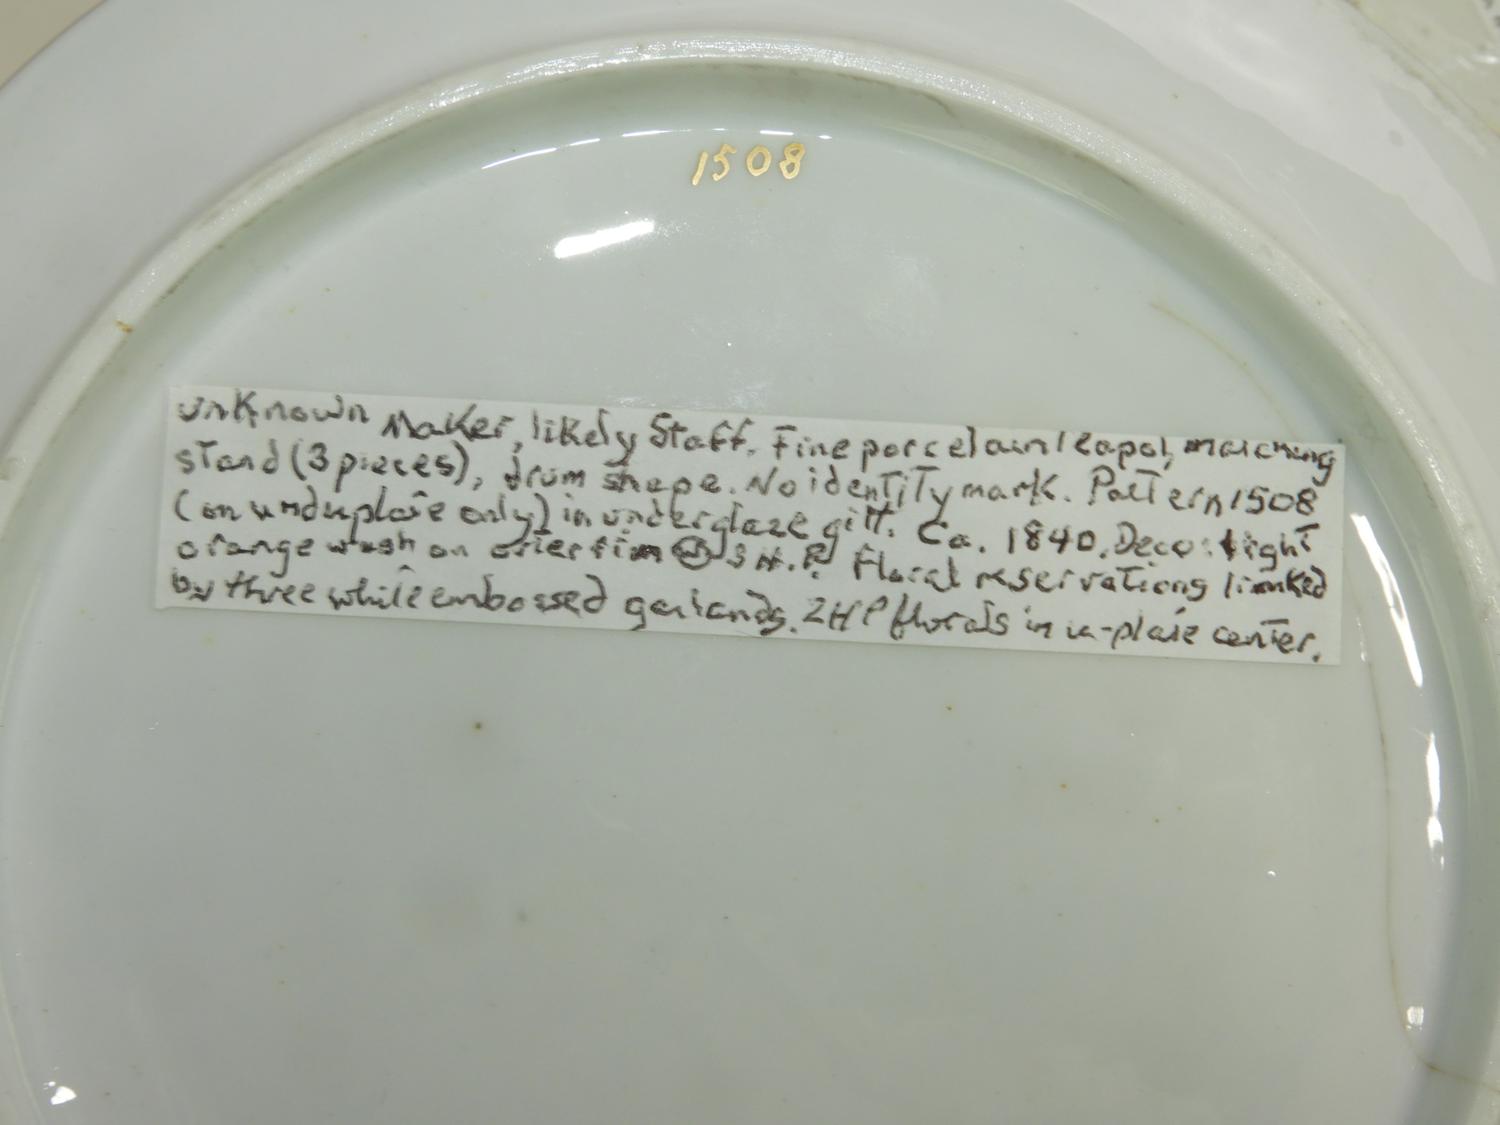 1508
unknown Maker, likely Staff. Fine porcelain teapot, matching
stand (3 pieces), drum shape. No identity mark. Pattern 1508
(on underplate only) in underglaze gilt. Ca. 1840. Deco: light
orange wash on 3 H.P. floral reservations linked
by three white embossed garlands. 2 HP florals in u-plate center.